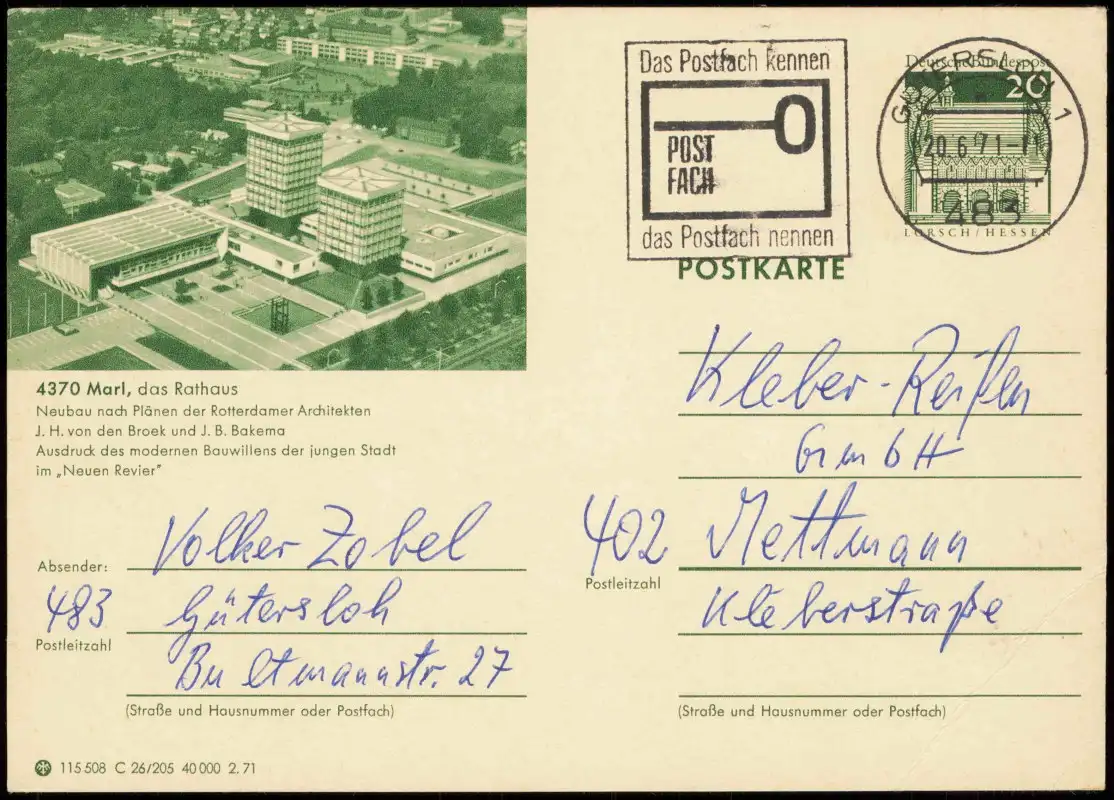 Das Postfach kennen
POST
FACH
das Postfach nennen
Deutsche Bundespost
20
GÜTERSLOH 1
20.6.71-11
483
LORSCH/HESSEN
POSTKARTE
4370 Marl, das Rathaus
Neubau nach Plänen der Rotterdamer Architekten
J. H. von den Broek und J. B. Bakema
Ausdruck des modernen Bauwillens der jungen Stadt
im „Neuen Revier"
Kleber-Reifen
GmbH
402 Mettmann
Postleitzahl
Kleberstraße
(Straße und Hausnummer oder Postfach)
Absender: Volker Zobel
483 Gütersloh
Postleitzahl
Bultmannstr. 27
(Straße und Hausnummer oder Postfach)
115 508 C 26/205 40 000 2.71